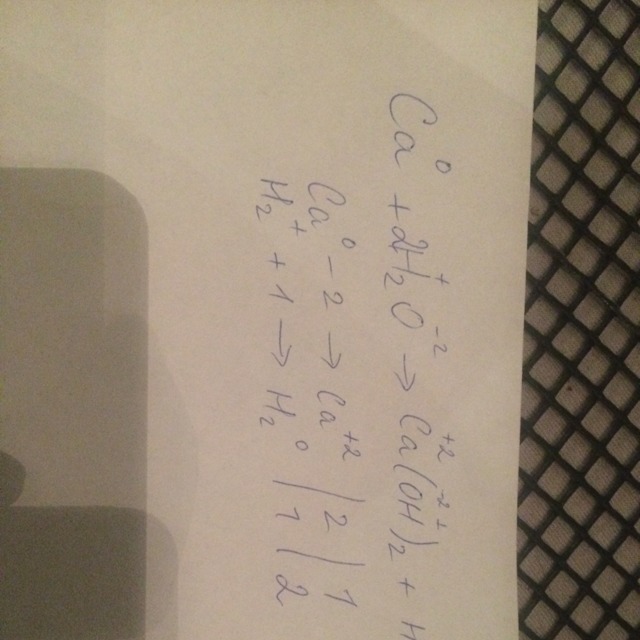 Ca⁰ + 2H₂⁺O⁻² → Ca⁺²(O⁻²H⁺)₂ + H
Ca⁰ - 2 → Ca⁺² / 2 / 1
H₂⁺ + 1 → H₂⁰ / 1 / 2